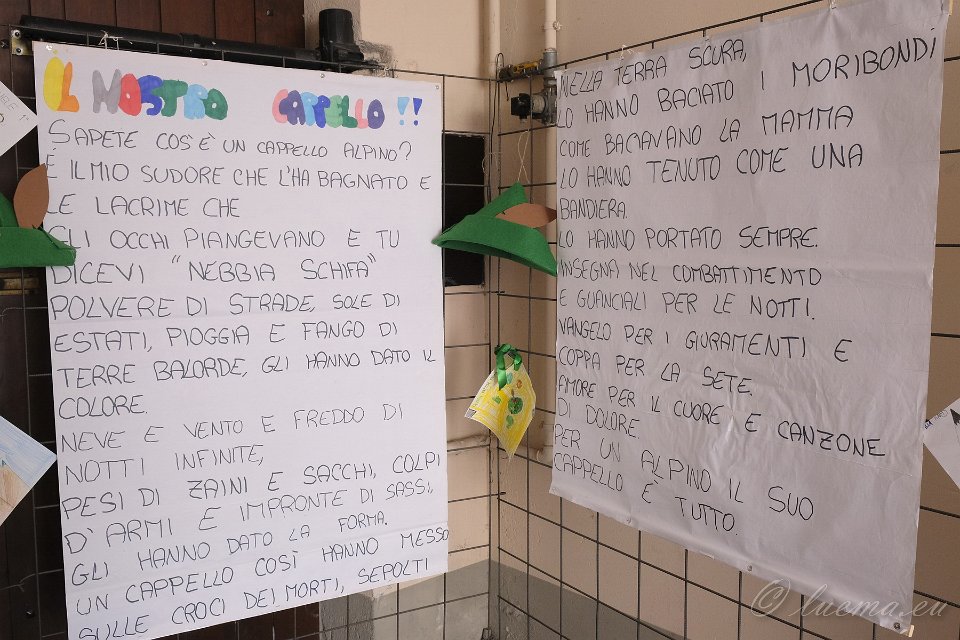 IL NOSTRO CAPPELLO !!
SAPETE COS'È UN CAPPELLO ALPINO?
È IL MIO SUDORE CHE L'HA BAGNATO E
LE LACRIME CHE
GLI OCCHI PIANGEVANO E TU
DICEVI "NEBBIA SCHIFA"
POLVERE DI STRADE, SOLE DI
ESTATI, PIOGGIA E FANGO DI
TERRE BALORDE, GLI HANNO DATO IL
COLORE.
NEVE E VENTO E FREDDO DI
NOTTI INFINITE,
PESI DI ZAINI E SACCHI, COLPI
D'ARMI E IMPRONTE DI SASSI,
GLI HANNO DATO LA FORMA.
UN CAPPELLO COSÌ HANNO MESSO
SULLE CROCI DEI MORTI, SEPOLTI
NELLA TERRA SCURA,
LO HANNO BACIATO I MORIBONDI
COME BACIAVANO LA MAMMA
LO HANNO TENUTO COME UNA
BANDIERA.
LO HANNO PORTATO SEMPRE.
INSEGNA NEL COMBATTIMENTO
E GUANCIALI PER LE NOTTI.
VANGELO PER I GIURAMENTI E
COPPA PER LA SETE.
AMORE PER IL CUORE E CANZONE
DI DOLORE.
PER UN ALPINO IL SUO
CAPPELLO È TUTTO.
© luoma.eu